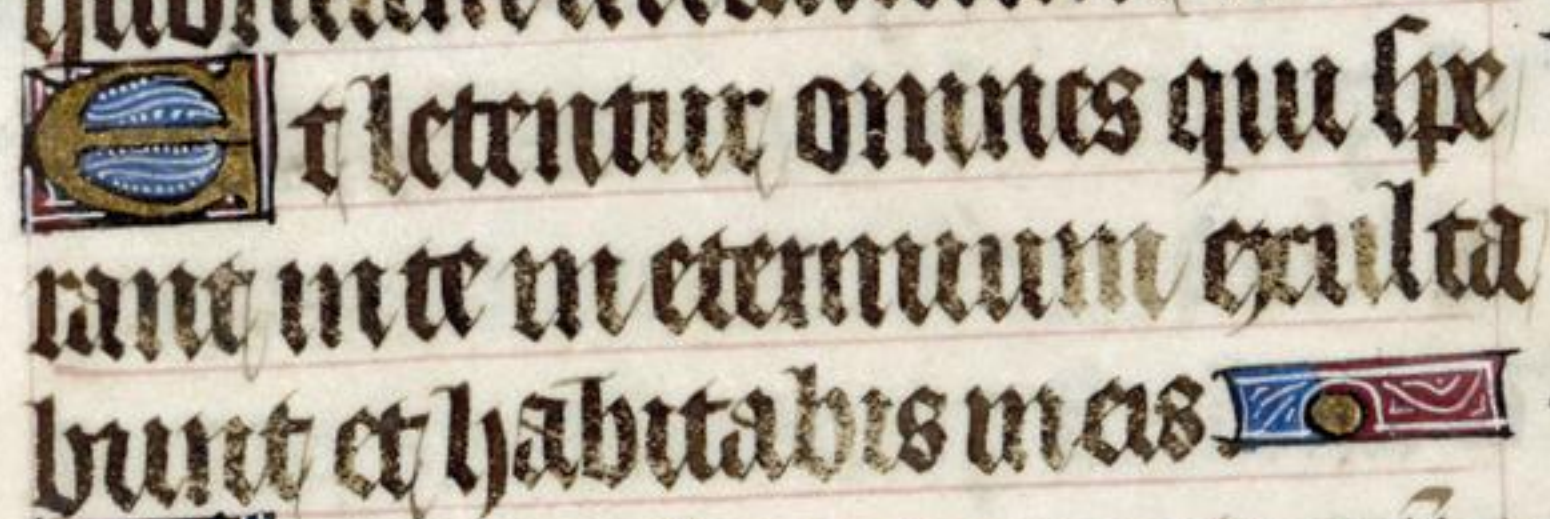 Et letentur omnes qui spe
rant in te in eternum exulta
bunt et habitabis in eis.